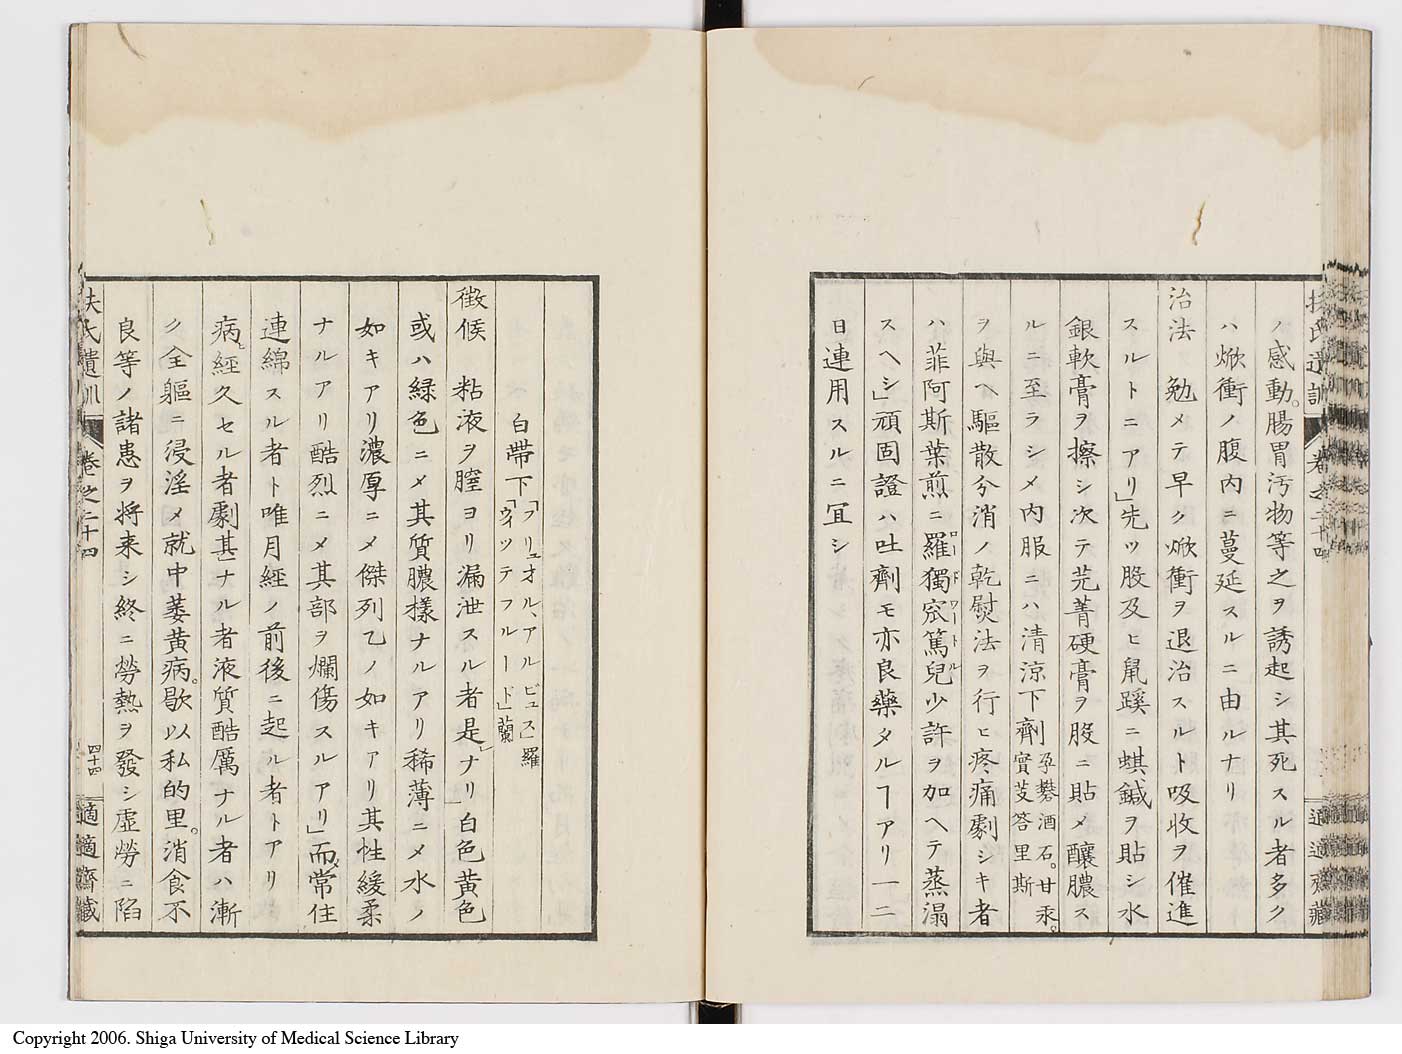 扶氏遺訓 卷之二十四 適適齋藏
ノ感動。腸胃汚物等之ヲ誘起シ其死スル者多ク
ハ焮衝ノ腹内ニ蔓延スルニ由ルナリ
治法 勉メテ早ク焮衝ヲ退治スルト吸收ヲ催進
スルトニアリ」先ツ股及ヒ鼠蹊ニ蜞鍼ヲ貼シ水
銀軟膏ヲ擦シ次テ芫菁硬膏ヲ股ニ貼メ釀膿ス
ルニ至ラシメ内服ニハ清涼下劑孕礬酒石。甘汞。實芰答里斯
ヲ與ヘ驅散分消ノ乾熨法ヲ行ヒ疼痛劇シキ者
ハ菲阿斯葉煎ニ羅獨窊篤兒少許ヲ加ヘテ蒸溻
スヘシ」頑固證ハ吐劑モ亦良藥タルヿアリ一二
日連用スルニ宜シ
白帶下「フリュオル、アルビュス」羅「ウィッテフルード」蘭
徴候 粘液ヲ膣ヨリ漏泄スル者是ナリ」白色黄色
或ハ緑色ニメ其質膿樣ナルアリ稀薄ニメ水ノ
如キアリ濃厚ニメ傑列乙ノ如キアリ其性緩柔
ナルアリ酷烈ニメ其部ヲ爛傷スルアリ」而常住
連綿スル者ト唯月經ノ前後ニ起ル者トアリ
病ヒ經久セル者劇甚ナル者液質酷厲ナル者ハ漸
ク全軀ニ浸淫メ就中萎黄病。歇以私的里。消食不
良等ノ諸患ヲ將来シ終ニ勞熱ヲ發シ虛勞ニ陷
扶氏遺訓 卷之二十四 四十四 適適齋藏
Copyright 2006. Shiga University of Medical Science Library